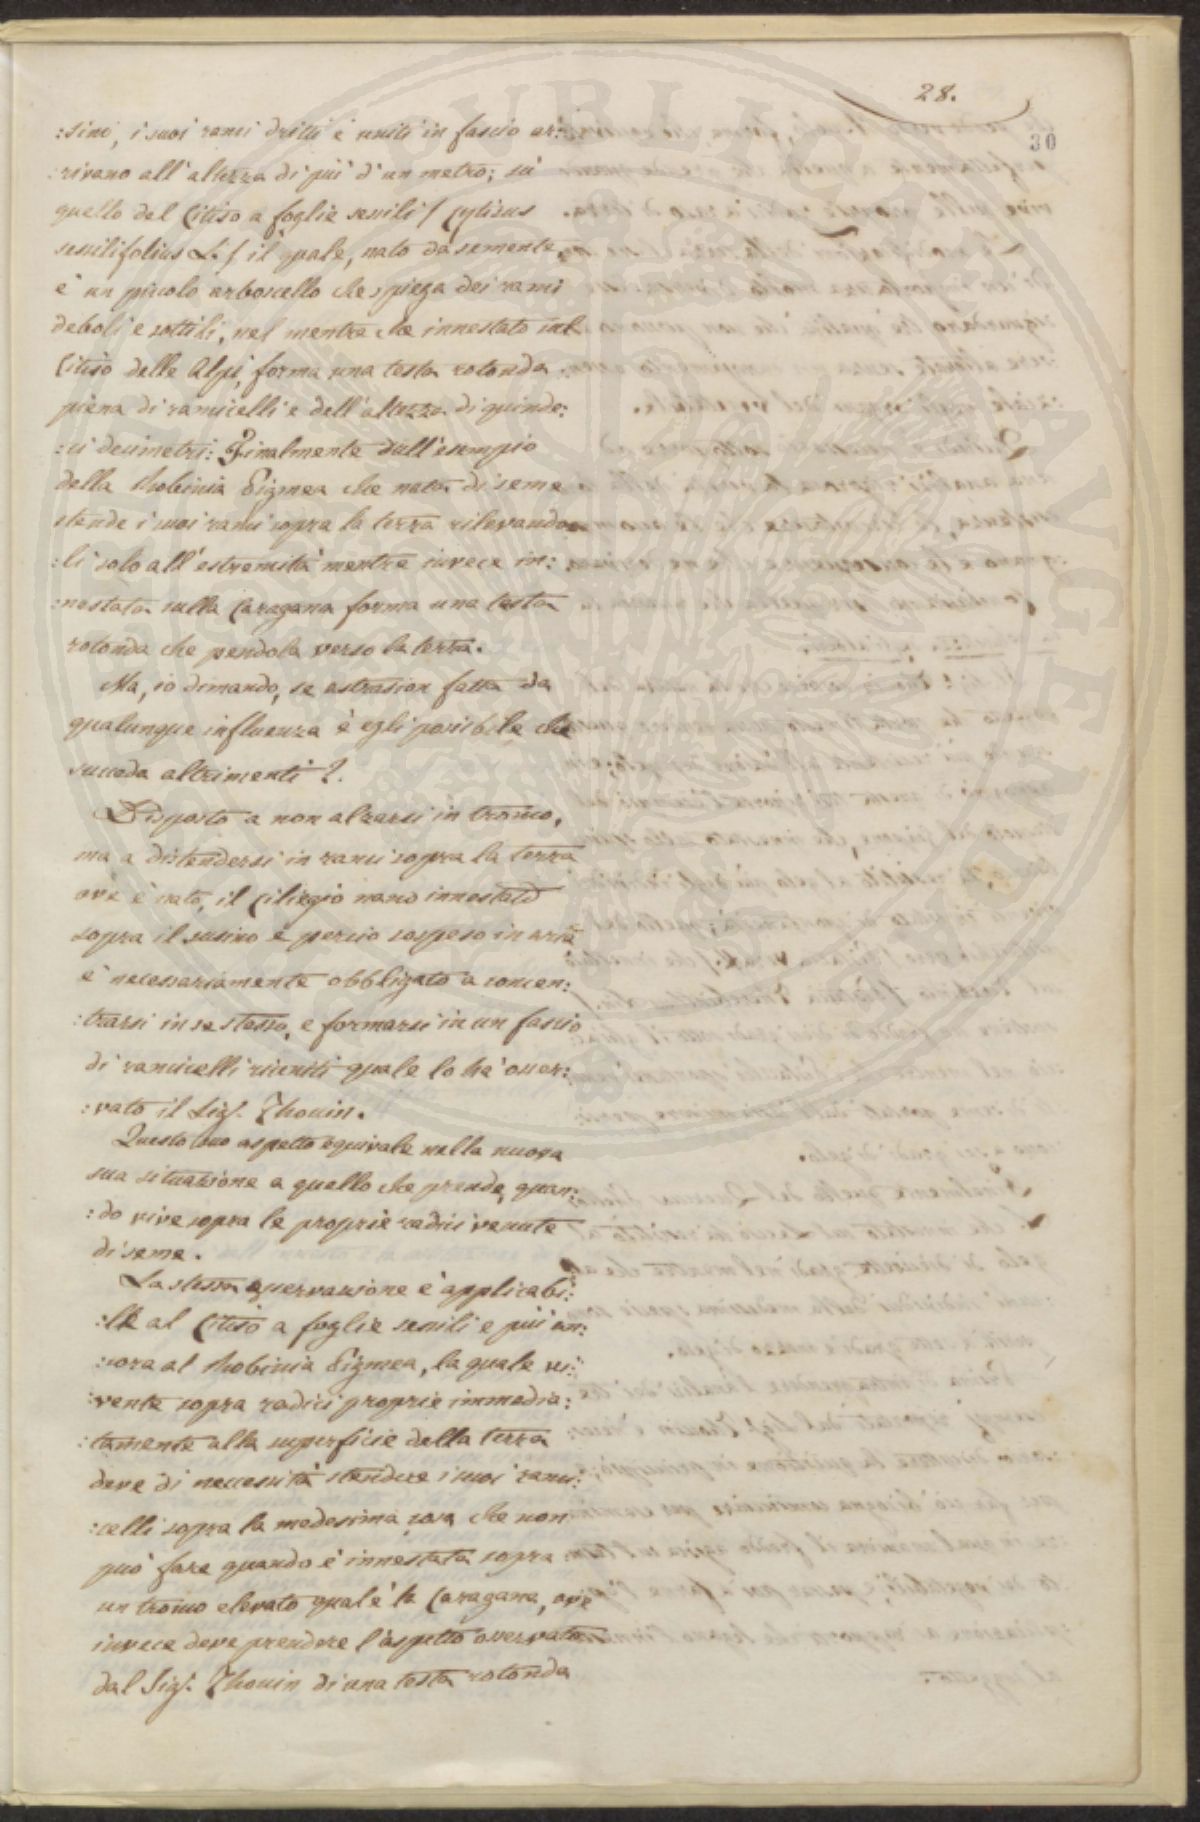 28.
30
:sini, i suoi rami dritti e uniti in fascio ar:
:rivano all'altezza di più d'un metro; su
quello del Citiso a foglie sessili / cytisus
sessilifolius L. / il quale, nato da semente,
è un piccolo arboscello che spiega dei rami
deboli e sottili, nel mentre che innestato sul
Citiso delle Alpi, forma una testa rotonda
piena di ramicelli e dell'altezza di quinde:
:ci decimetri: Finalmente dall'esempio
della Robinia Pigmea che nata di seme
stende i suoi rami sopra la terra rilevando
:li solo all'estremità mentre invece in:
:nestata sulla Caragana forma una testa
rotonda che pendola verso la terra.
Ma, io dimando, se astrasion fatta da
qualunque influenza è egli possibile che
succeda altrimenti?.
Disposto a non alzarsi in tronco,
ma a distendersi in rami sopra la terra
ov'è è nato, il Ciliegio nano innestato
sopra il susino e perciò sospeso in aria
è necessariamente obbligato a concen:
:trarsi in se stesso, e formarsi in un fascio
di ramicelli riuniti quale lo ha osser:
:vato il Sig.r Thouin.
Questo suo aspetto equivale nella nuova
sua situazione a quello che prende, quan:
:do vive sopra le proprie radici venute
di seme.
La stessa osservazione è applicabi:
:le al Citiso a foglie sessili e più an:
:cora al Robinia Pigmea, la quale vi:
:vente sopra radici proprie immedia:
:tamente alla superficie della terra
deve di neccessità stendere i suoi rami:
:celli sopra la medesima cosa che non
può fare quando è innestata sopra
un tronco elevato qual'è la Caragana, ove
invece deve prendere l'aspetto osservato
dal Sig.r Thouin di una testa rotonda
PUBLICAE AVGENDO